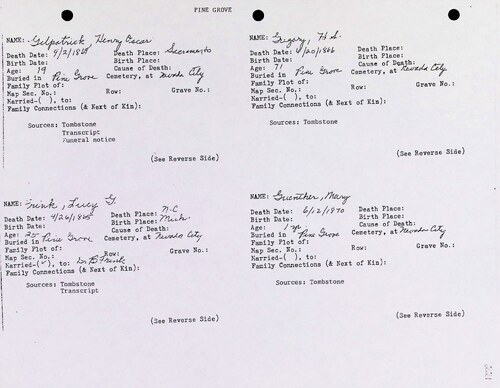 PINE GROVE
NAME: Gelpatrick, Henry Oscar
Death Date: 9/2/1865 Death Place: Sacramento
Birth Date: Birth Place:
Age: 19 Cause of Death:
Buried in Pine Grove Cemetery, at Nevada City
Family Plot of:
Map Sec. No.: Row: Grave No.:
Married-( ), to:
Family Connections (& Next of Kin):
Sources: Tombstone
Transcript
Funeral notice
(See Reverse Side)
NAME: Gregory, H.S.
Death Date: /20/1866 Death Place:
Birth Date: Birth Place:
Age: 71 Cause of Death:
Buried in Pine Grove Cemetery, at Nevada City
Family Plot of:
Map Sec. No.: Row: Grave No.:
Married-( ), to:
Family Connections (& Next of Kin):
Sources: Tombstone
(See Reverse Side)
NAME: Frink, Lucy G.
Death Date: 4/26/1865 Death Place: N.C
Birth Date: Birth Place: Mich.
Age: 25 Cause of Death:
Buried in Pine Grove Cemetery, at Nevada City
Family Plot of:
Map Sec. No.: Row: Grave No.:
Married-(✓), to: Dr. B Frink
Family Connections (& Next of Kin):
Sources: Tombstone
Transcript
(See Reverse Side)
NAME: Guenther, Mary
Death Date: 6/12/1870 Death Place:
Birth Date: Birth Place:
Age: 1 yr Cause of Death:
Buried in Pine Grove Cemetery, at Nevada City
Family Plot of:
Map Sec. No.: Row: Grave No.:
Married-( ), to:
Family Connections (& Next of Kin):
Sources: Tombstone
(See Reverse Side)